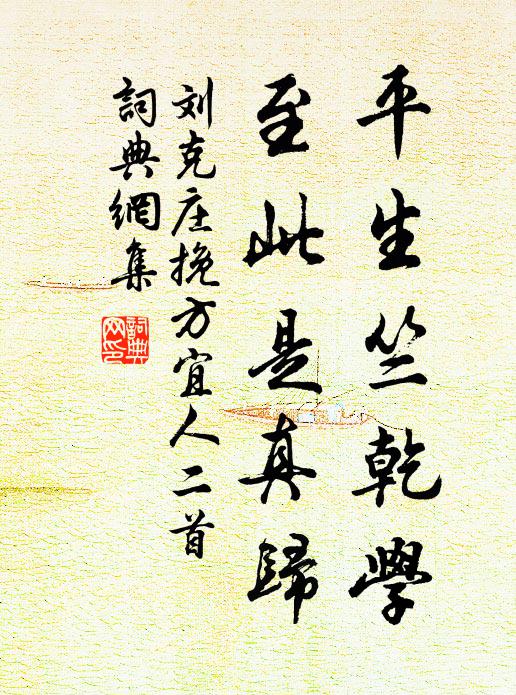 平生竺乾學
至此是真歸
刘克庄挽方宜人二首
詞典網集
詞典
网印